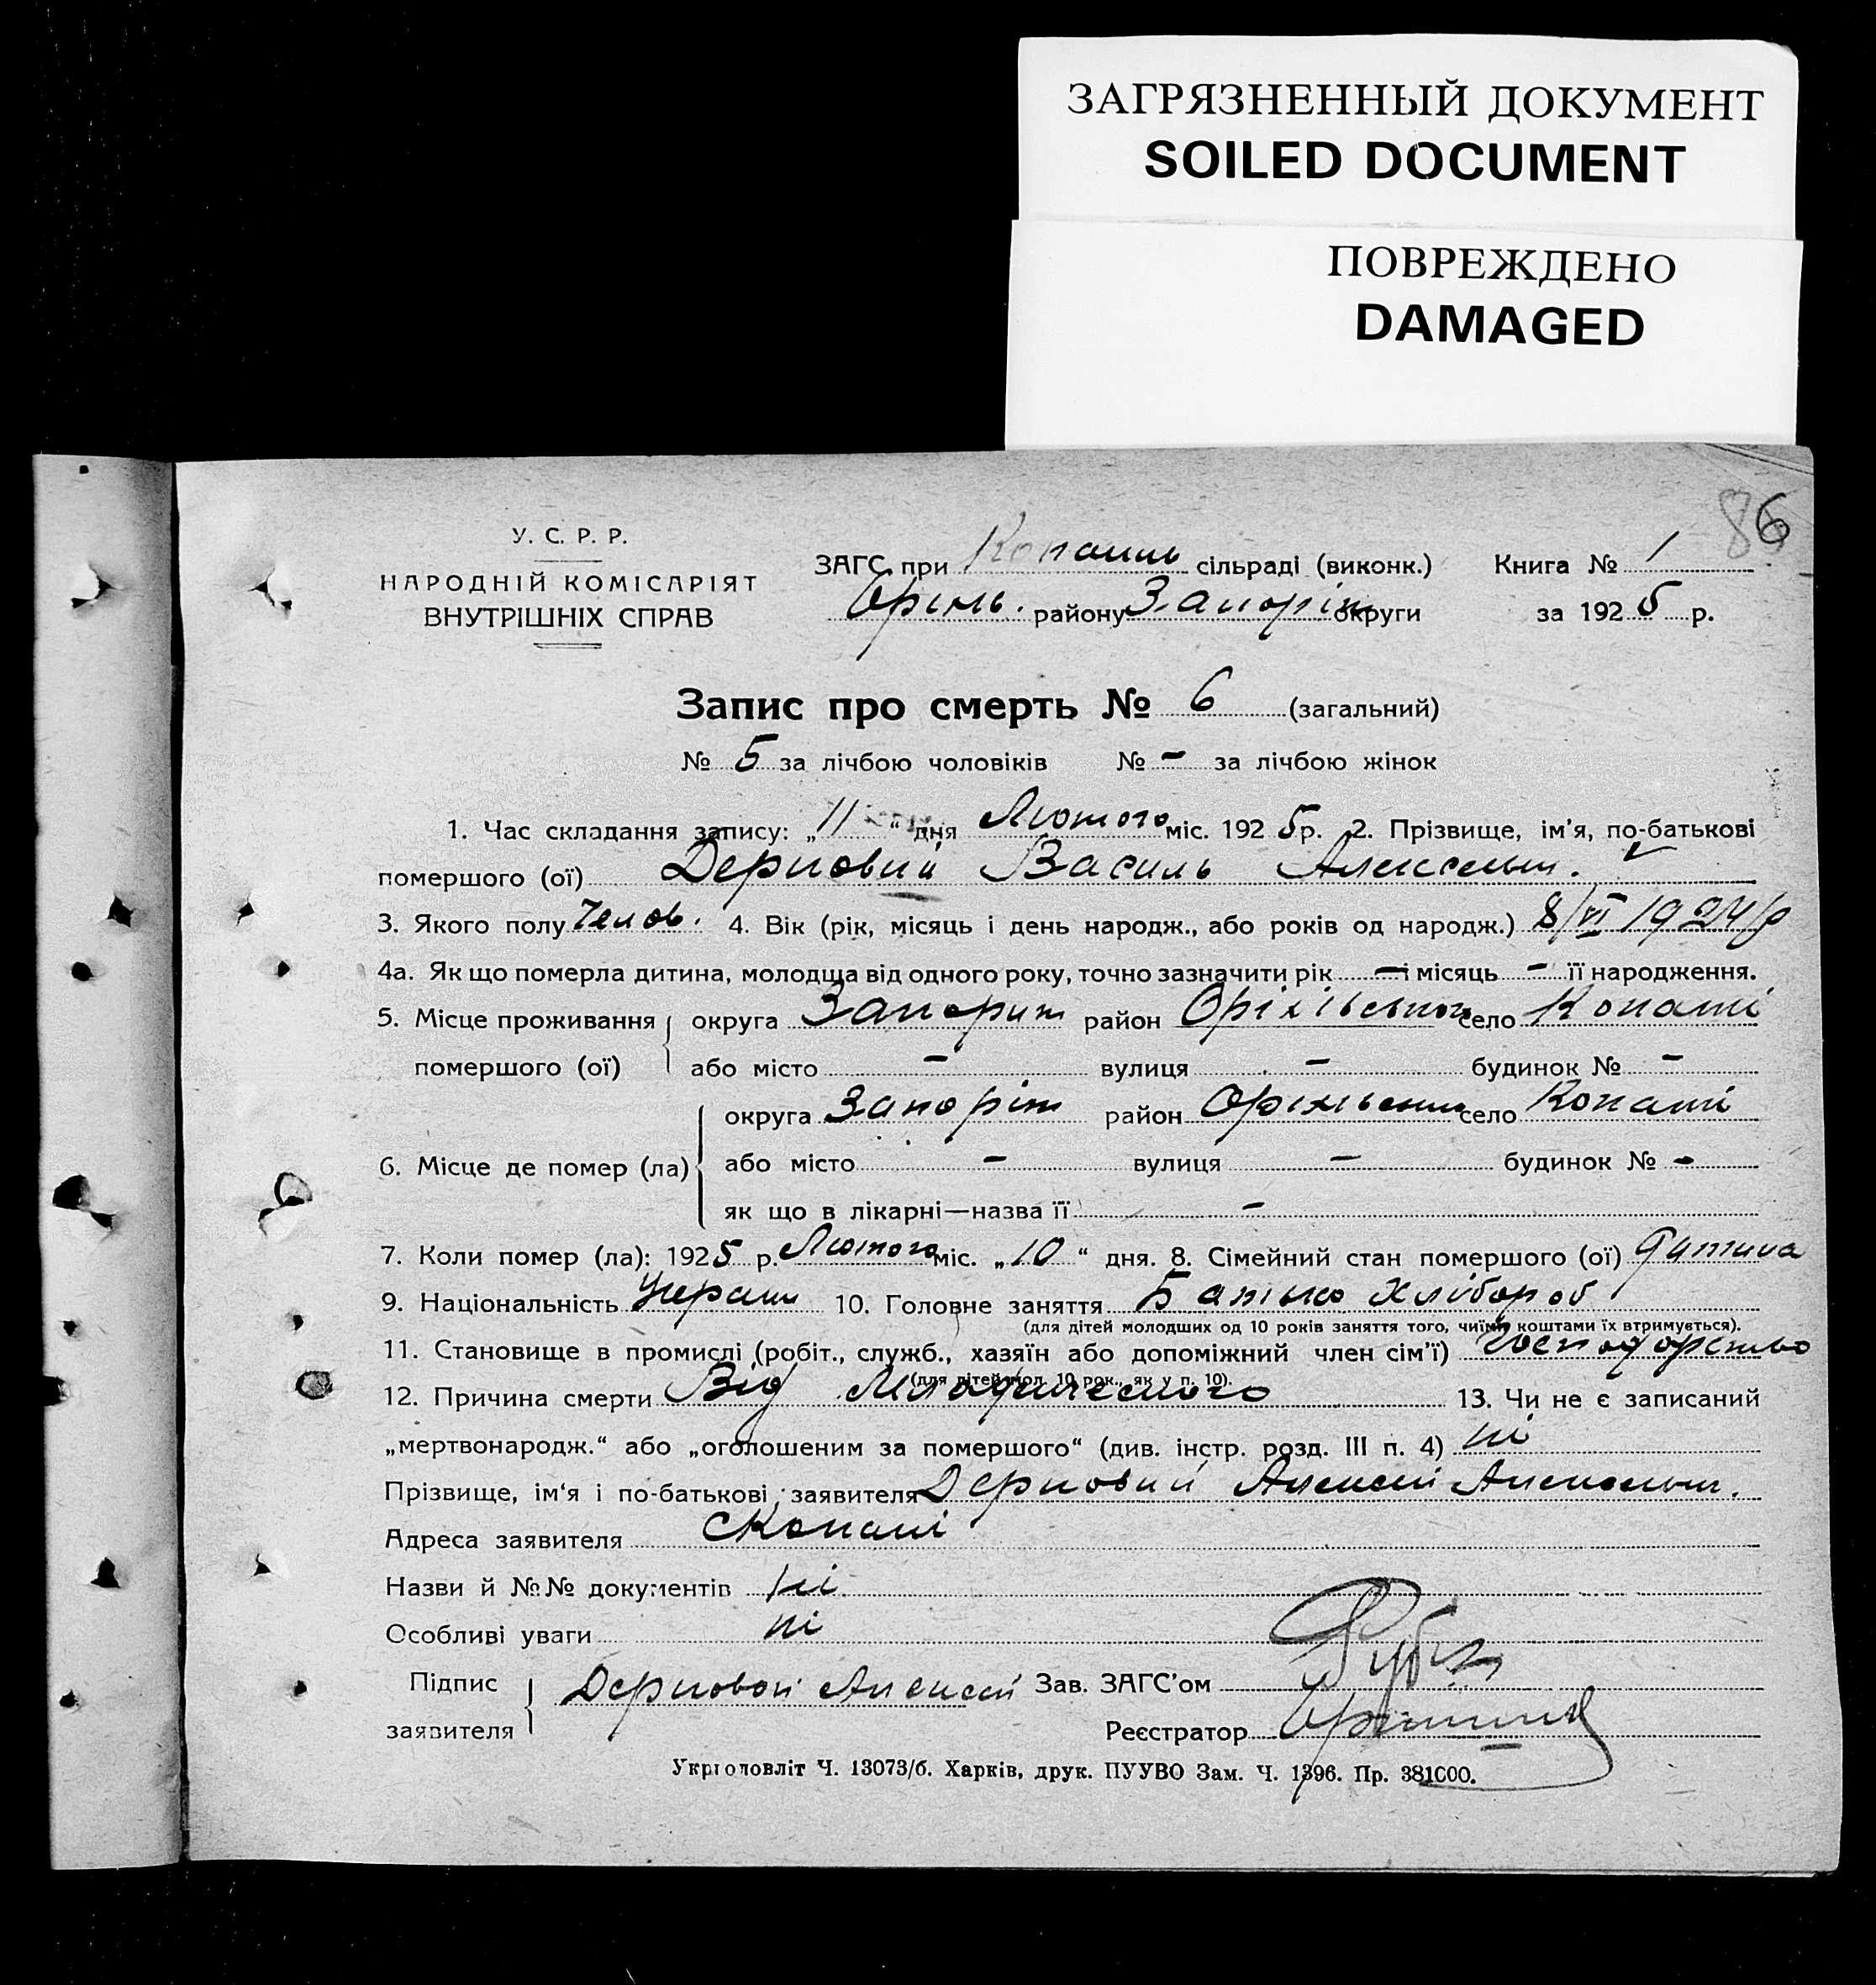 ЗАГРЯЗНЕННЫЙ ДОКУМЕНТ
SOILED DOCUMENT
ПОВРЕЖДЕНО
DAMAGED
86
У. С. Р. Р.
НАРОДНІЙ КОМІСАРІЯТ
ВНУТРІШНІХ СПРАВ
ЗАГС при Копань сільраді (виконк.) Книга № 1
Оріхів. району Запоріж округи за 1925 р.
Запис про смерть № 6 (загальний)
№ 5 за лічбою чоловіків № - за лічбою жінок
1. Час складання запису: „11“ дня Лютого міс. 1925 р. 2. Прізвище, ім'я, по-батькові
помершого (ої) Дерновий Василь Алексеевич.
3. Якого полу Челов. 4. Вік (рік, місяць і день народж., або років од народж.) 8/VI 1924 р
4а. Як що померла дитина, молодща від одного року, точно зазначити рік — і місяць - її народження.
5. Місце проживання округа Запориж район Оріхівського село Копані
помершого (ої) або місто - вулиця - будинок № -
округа Запоріж район Оріхівськ село Копані
6. Місце де помер (ла) або місто - вулиця - будинок № -
як що в лікарні—назва її -
7. Коли помер (ла): 1925 р. Лютого міс. „10“ дня. 8. Сімейний стан помершого (ої) Дитина
9. Національність Україн 10. Головне заняття Батько Хлібороб
(для дітей молодших од 10 років заняття того, чиїми коштами їх втримується).
11. Становище в промислі (робіт., служб., хазяїн або допоміжний член сім'ї) Господорство
(для дітей мол. 10 рок., як у п. 10).
12. Причина смерти Від Младенческого 13. Чи не є записаний
„мертвонародж.“ або „оголошеним за помершого“ (див. інстр. розд. III п. 4) ні
Прізвище, ім'я і по-батькові заявителя Дерновий Алексей Алексеевич.
Адреса заявителя с Копані
Назви й №№ документів ні
Особливі уваги ні
Підпис заявителя Дерновой Алексей Зав. ЗАГС'ом
Реєстратор
Укрголовліт Ч. 13073/б. Харків, друк. ПУУВО Зам. Ч. 1396. Пр. 381000.